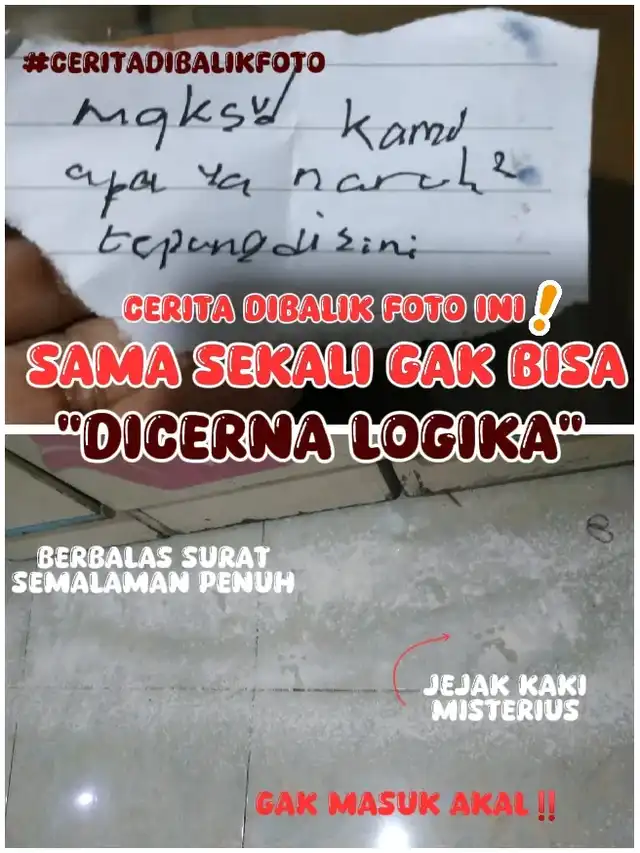 #CERITADIBALIKFOTO
maksud kamu
apa ya naruh²
tepung disini
CERITA DIBALIK FOTO INI❗
SAMA SEKALI GAK BISA
"DICERNA LOGIKA"
BERBALAS SURAT
SEMALAMAN PENUH
JEJAK KAKI
MISTERIUS
GAK MASUK AKAL‼